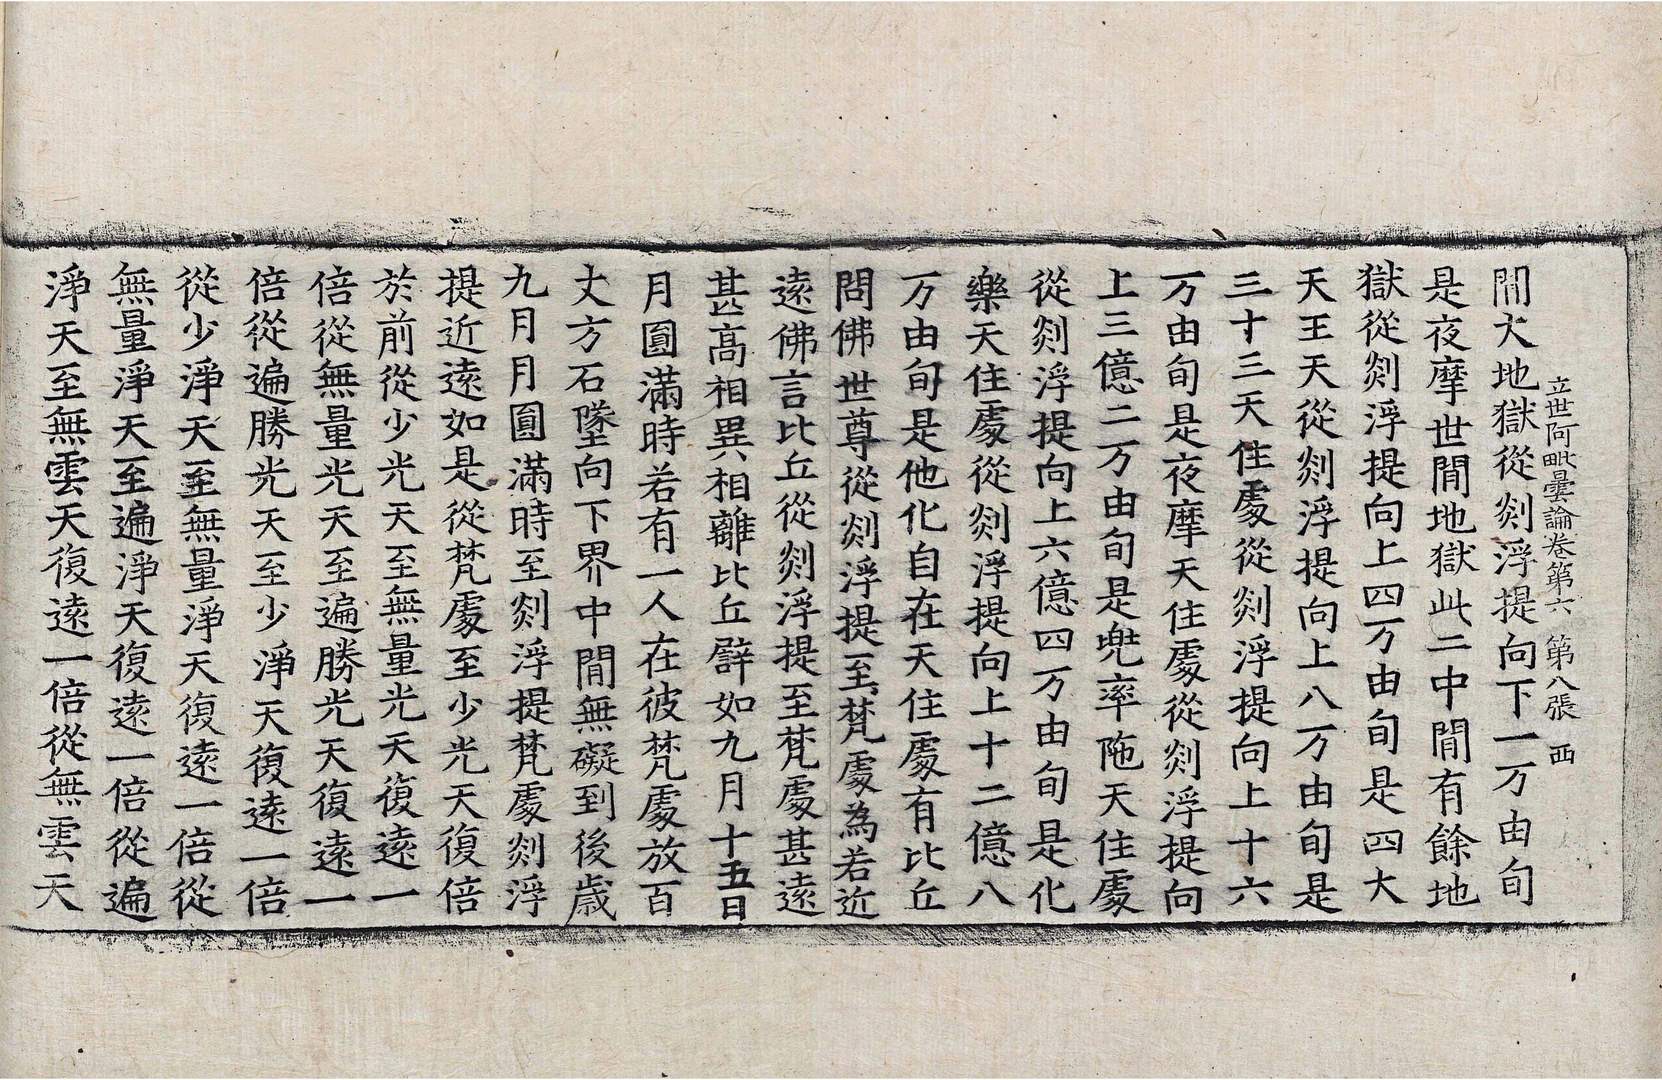 立世阿毗曇論卷第六 第八張 西
閒大地獄從剡浮提向下一万由旬
是夜摩世閒地獄此二中閒有餘地
獄從剡浮提向上四万由旬是四大
天王天從剡浮提向上八万由旬是
三十三天住處從剡浮提向上十六
万由旬是夜摩天住處從剡浮提向
上三億二万由旬是兜率陁天住處
從剡浮提向上六億四万由旬是化
樂天住處從剡浮提向上十二億八
万由旬是他化自在天住處有比丘
問佛世尊從剡浮提至梵處為若近
遠佛言比丘從剡浮提至梵處甚遠
甚高相異相離比丘譬如九月十五日
月圓滿時若有一人在彼梵處放百
丈方石墜向下界中閒無礙到後歲
九月月圓滿時至剡浮提梵處剡浮
提近遠如是從梵處至少光天復倍
於前從少光天至無量光天復遠一
倍從無量光天至遍勝光天復遠一
倍從遍勝光天至少淨天復遠一倍
從少淨天至無量淨天復遠一倍從
無量淨天至遍淨天復遠一倍從遍
淨天至無雲天復遠一倍從無雲天